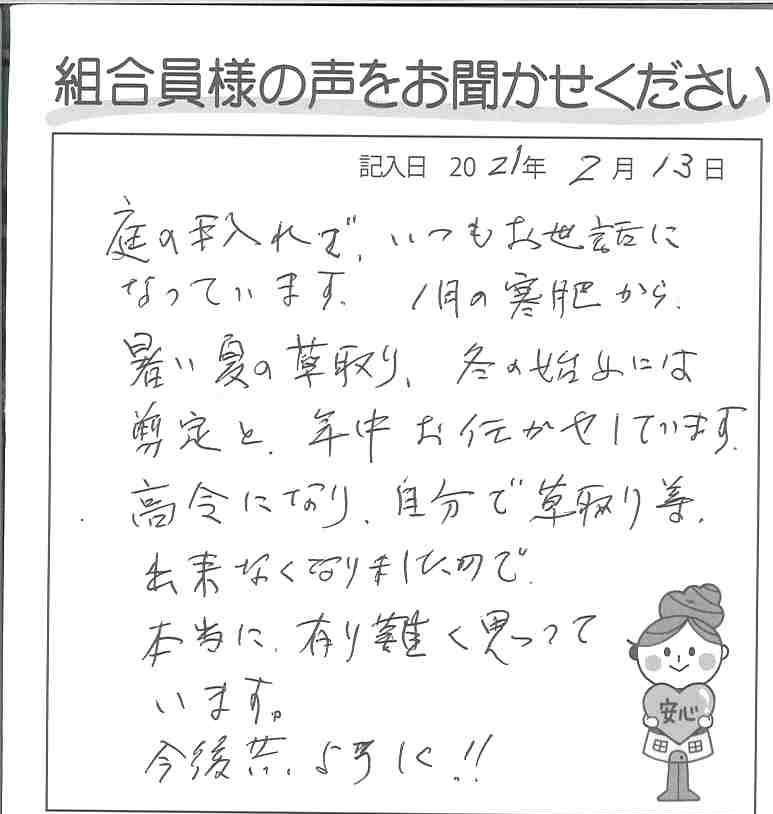 組合員様の声をお聞かせください
記入日 2021年 2月13日
庭の手入れで、いつもお世話に
なっています。 1月の寒肥から、
暑い夏の草取り、冬の始めには
剪定と、年中お任かせしています。
高令になり、自分で草取り等、
出来なくなりましたので、
本当に、有り難く思って
います。
今後共、よろしく!!
安心